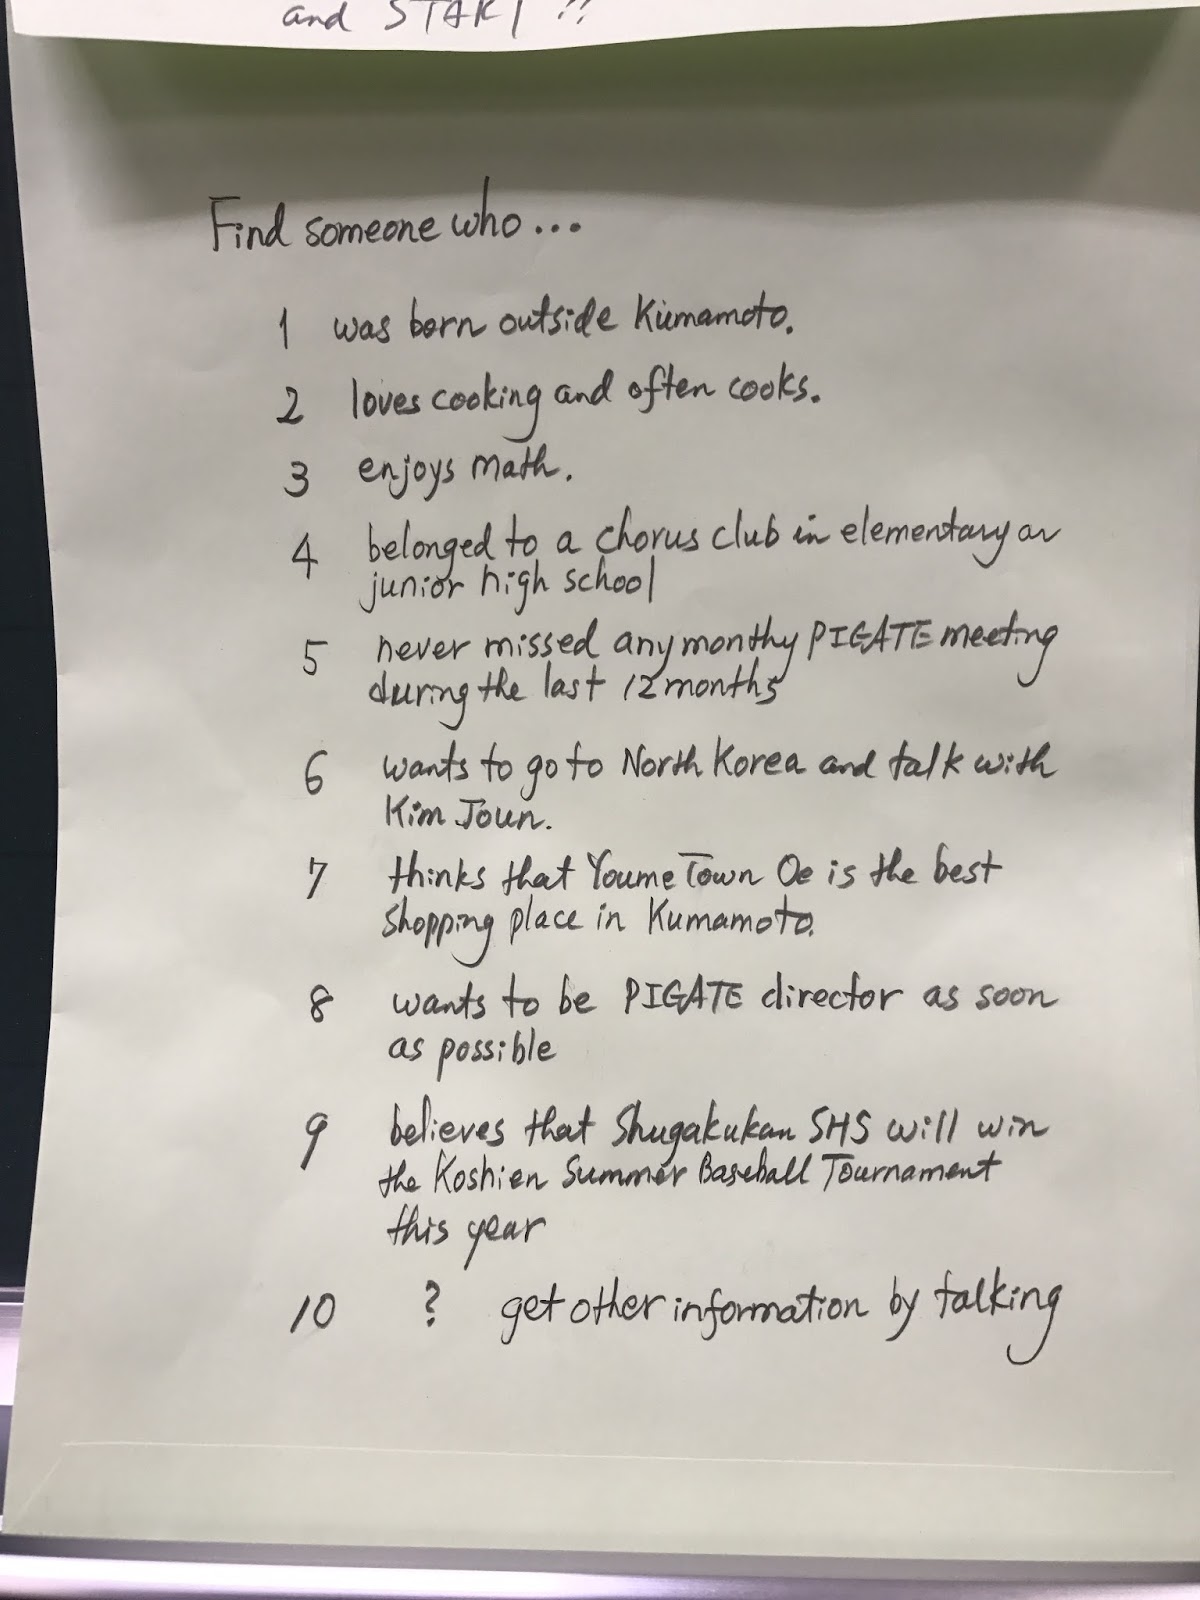 and START!!
Find someone who...
1 was born outside Kumamoto.
2 loves cooking and often cooks.
3 enjoys math.
4 belonged to a chorus club in elementary or
junior high school
5 never missed any monthy PIGATE meeting
during the last 12 months
6 wants to go to North Korea and talk with
Kim Joun.
7 thinks that Youme Town Oe is the best
shopping place in Kumamoto.
8 wants to be PIGATE director as soon
as possible
9 believes that Shugakukan SHS will win
the Koshien Summer Baseball Tournament
this year
10 ? get other information by talking